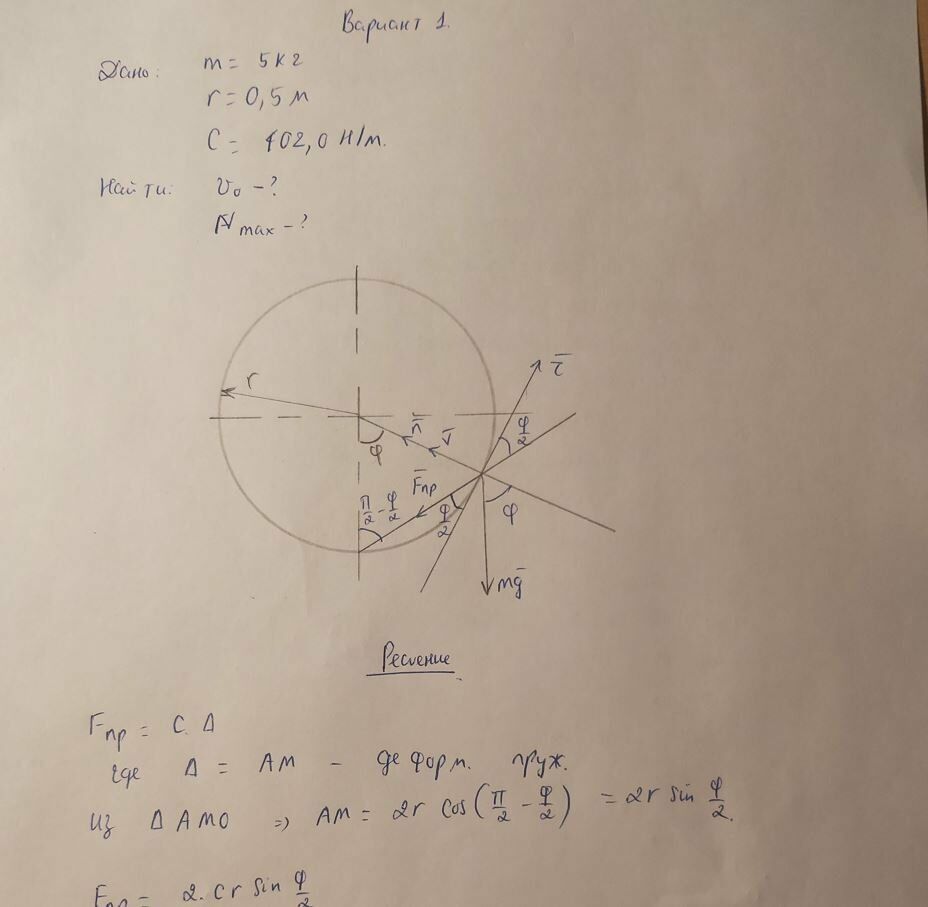 Вариант 1.
Дано: m = 5 кг
r = 0,5 м
C = 102,0 Н/м.
Найти: v₀ - ?
N max - ?
τ̅
r
n̅
v̅
φ/2
φ
F̅пр
π/2 - φ/2
φ/2
φ
mg̅
Решение
Fпр = C · Δ
где Δ = AM - деформ. пруж.
из Δ AMO => AM = 2r cos(π/2 - φ/2) = 2r sin φ/2.
Fпр = 2 · C r sin φ/2